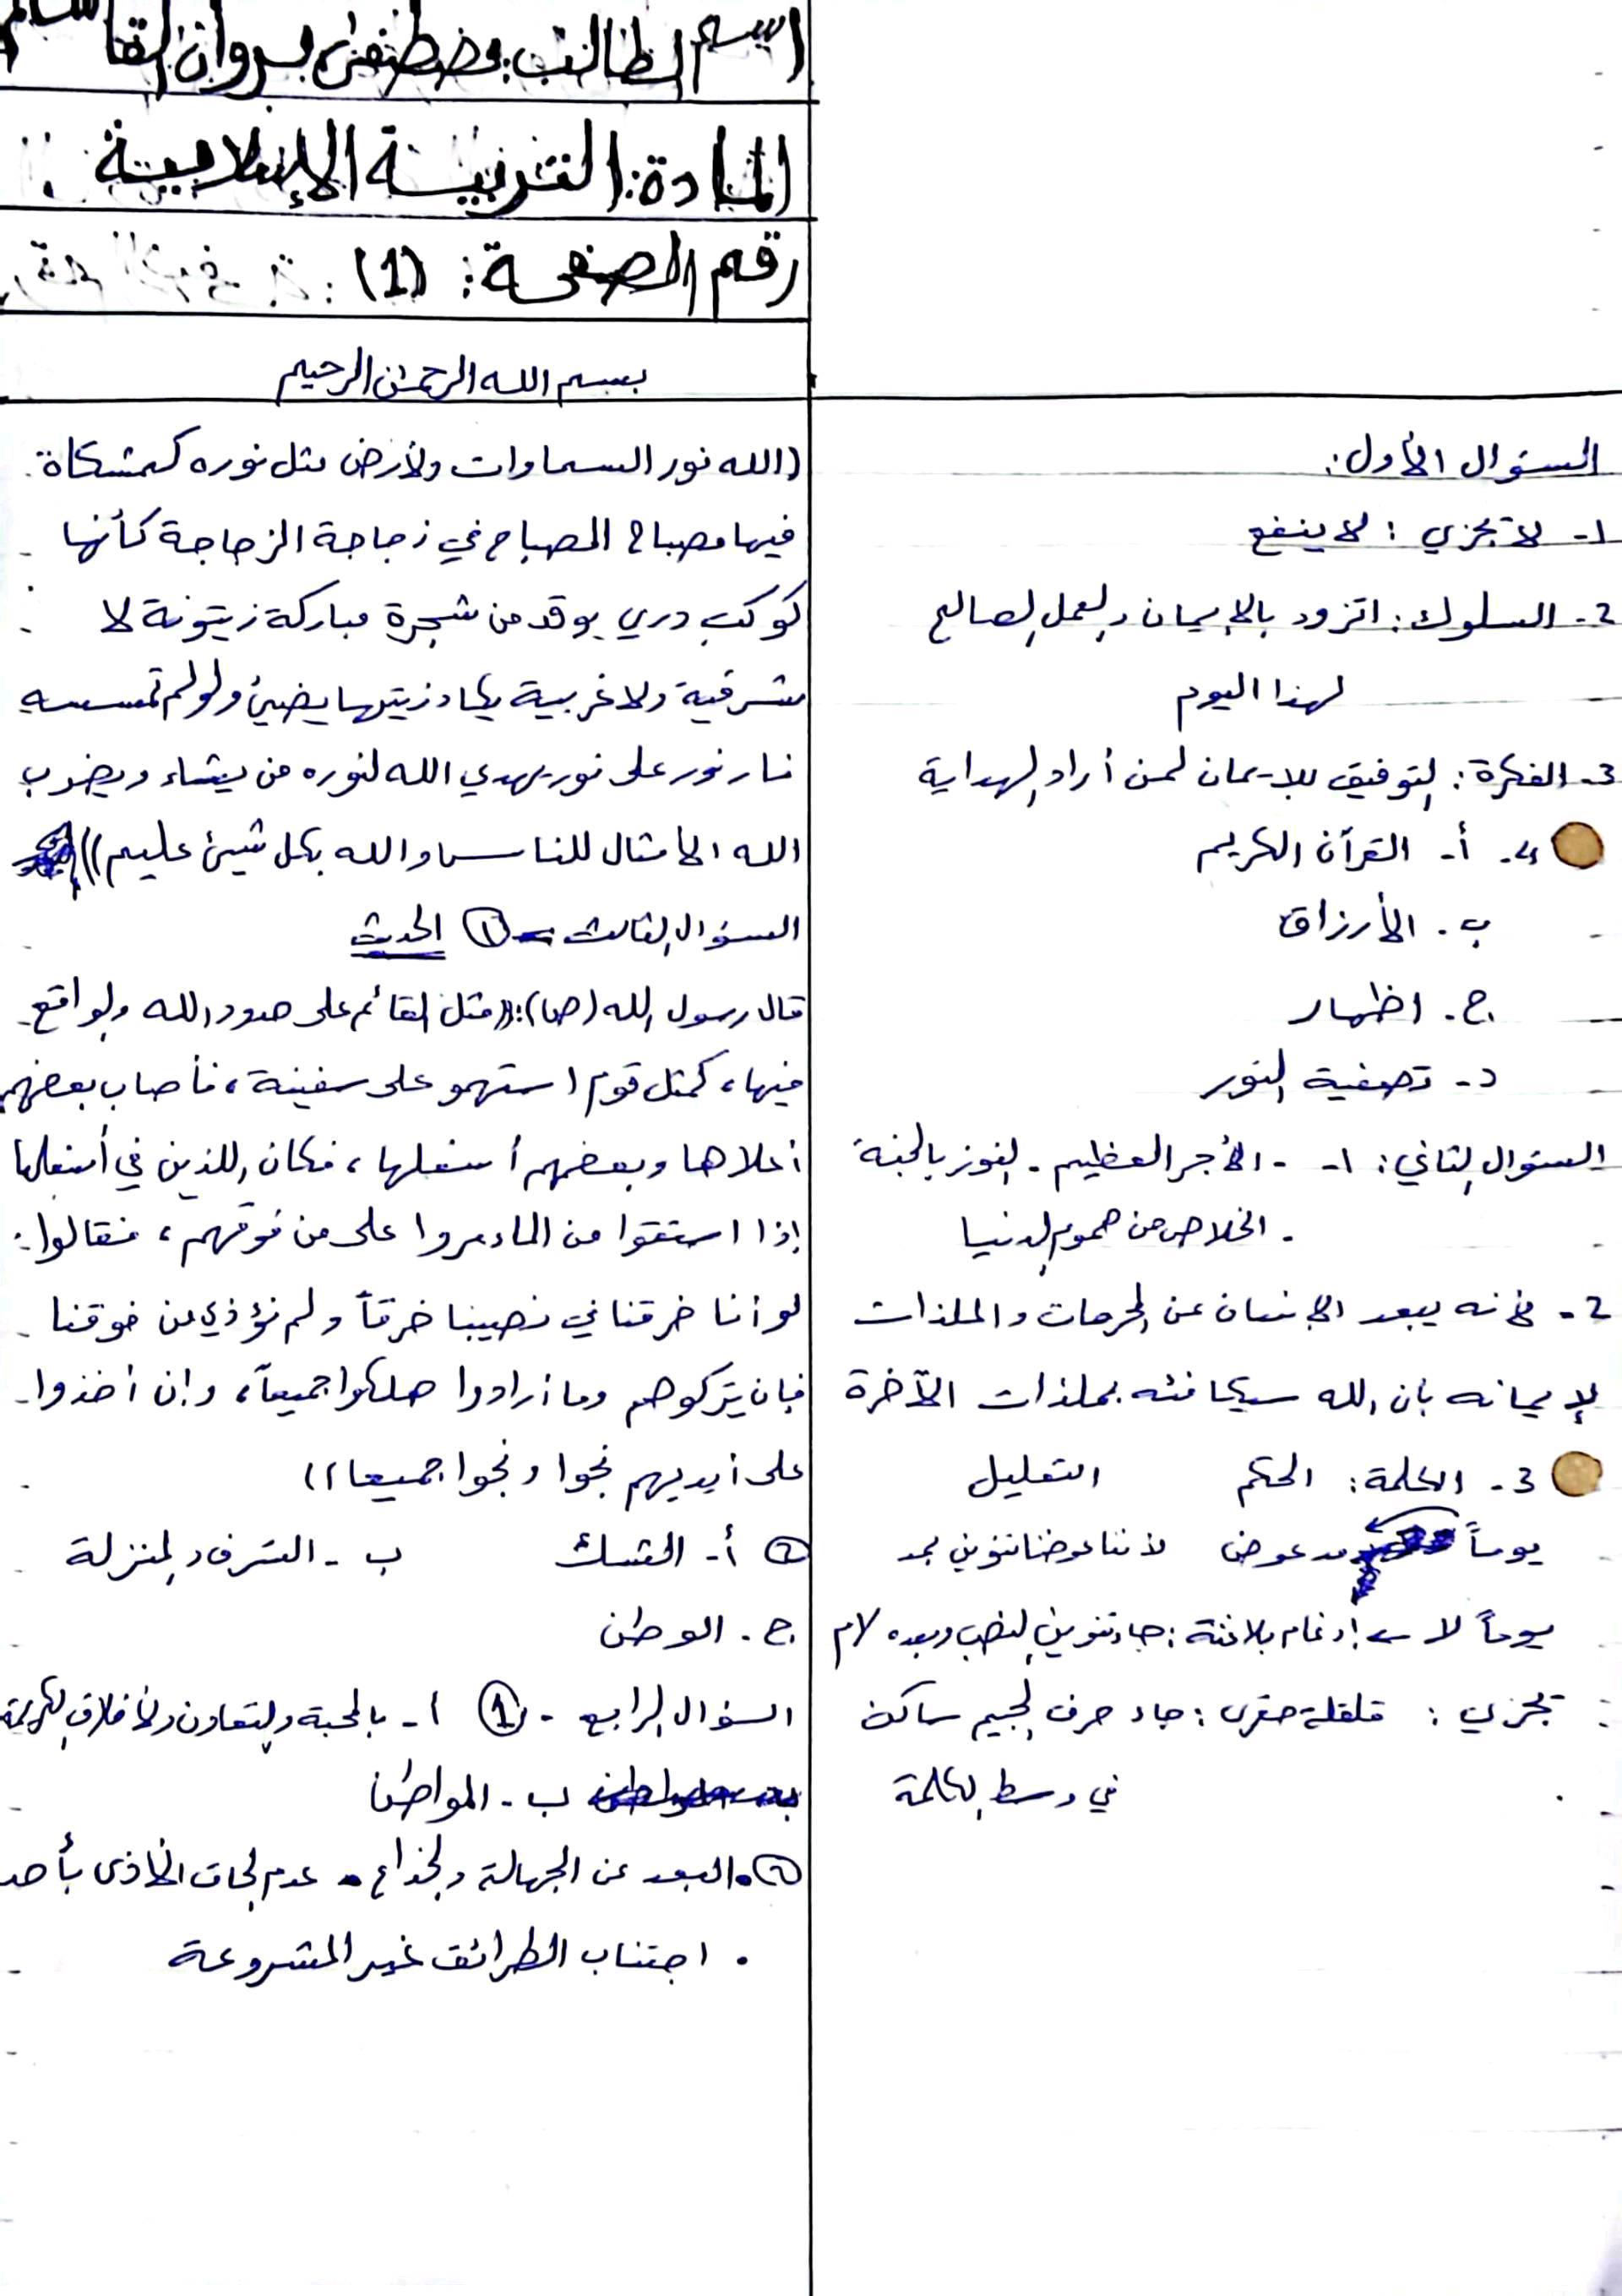 اسم الطالب: مصطفى مروان القاسم
المادة: التربية الإسلامية
رقم الصفحة: (1)
السؤال الأول:
1- لا تجزي: لا ينفع
2- السلوك: اتزود بالإيمان والعمل الصالح
لهذا اليوم
3- الفكرة: التوفيق للإيمان لمن أراد الهداية
4- أ- القرآن الكريم
ب. الأرزاق
ج. اظهار
د- تصفية النور
السؤال الثاني: 1- - الأجر العظيم - الفوز بالجنة
- الخلاص من هموم الدنيا
2- لأنه يبعد الإنسان عن المحرمات والملذات
لإيمانه بأن الله سيكافئه بملذات الآخرة
3- الكلمة: الحكم التعليل
يوماً مد عوض لأننا عوضنا تنوين بمد
يوماً لا ← إدغام بلا غنة: جاء تنوين النصب وبعده لام
تجزي: قلقلة صغرى: جاء حرف الجيم ساكن
في وسط الكلمة
بسم الله الرحمن الرحيم
((الله نور السماوات ولأرض مثل نوره كمشكاة
فيها مصباح المصباح في زجاجة الزجاجة كأنها
كوكب دري يوقد من شجرة مباركة زيتونة لا
شرقية ولا غربية يكاد زيتها يضيئ ولو لم تمسسه
نار نور على نور يهدي الله لنوره من يشاء ويضرب
الله الأمثال للناس والله بكل شيئ عليم))
السؤال الثالث - ① الحديث
قال رسول الله (ص): ((مثل القائم على حدود الله والواقع
فيها، كمثل قوم استهمو على سفينة، فأصاب بعضهم
أعلاها وبعضهم أسفلها، فكان الذين في أسفلها
إذا استقوا من الماء مروا على من فوقهم، فقالوا:
لو أنا خرقنا في نصيبنا خرقاً ولم نؤذي من فوقنا
فإن يتركوهم وما أرادوا هلكوا جميعاً، وإن أخذوا
على أيديهم نجوا ونجوا جميعا))
② أ- التمسك ب- الشرف والمنزلة
ج. الوطن
السؤال الرابع - ① أ- بالمحبة والتعاون والأخلاق الكريمة
ب- المواطن
② • البعد عن الجهالة والخداع • عدم لحاق الأذى بأحد
• اجتناب الطرائق غير المشروعة